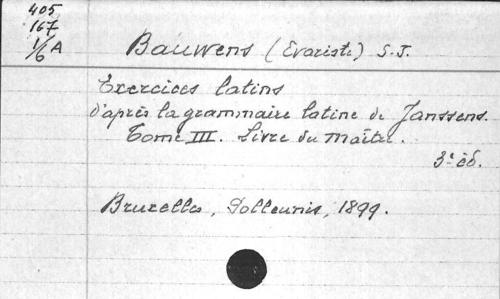 405
167
1/6 A
Bauwens (Evariste) S.J.
Exercices latins
d'après la grammaire latine de Janssens.
Tome III. Livre du maître.
3e éd.
Bruxelles, Polleunis, 1899.